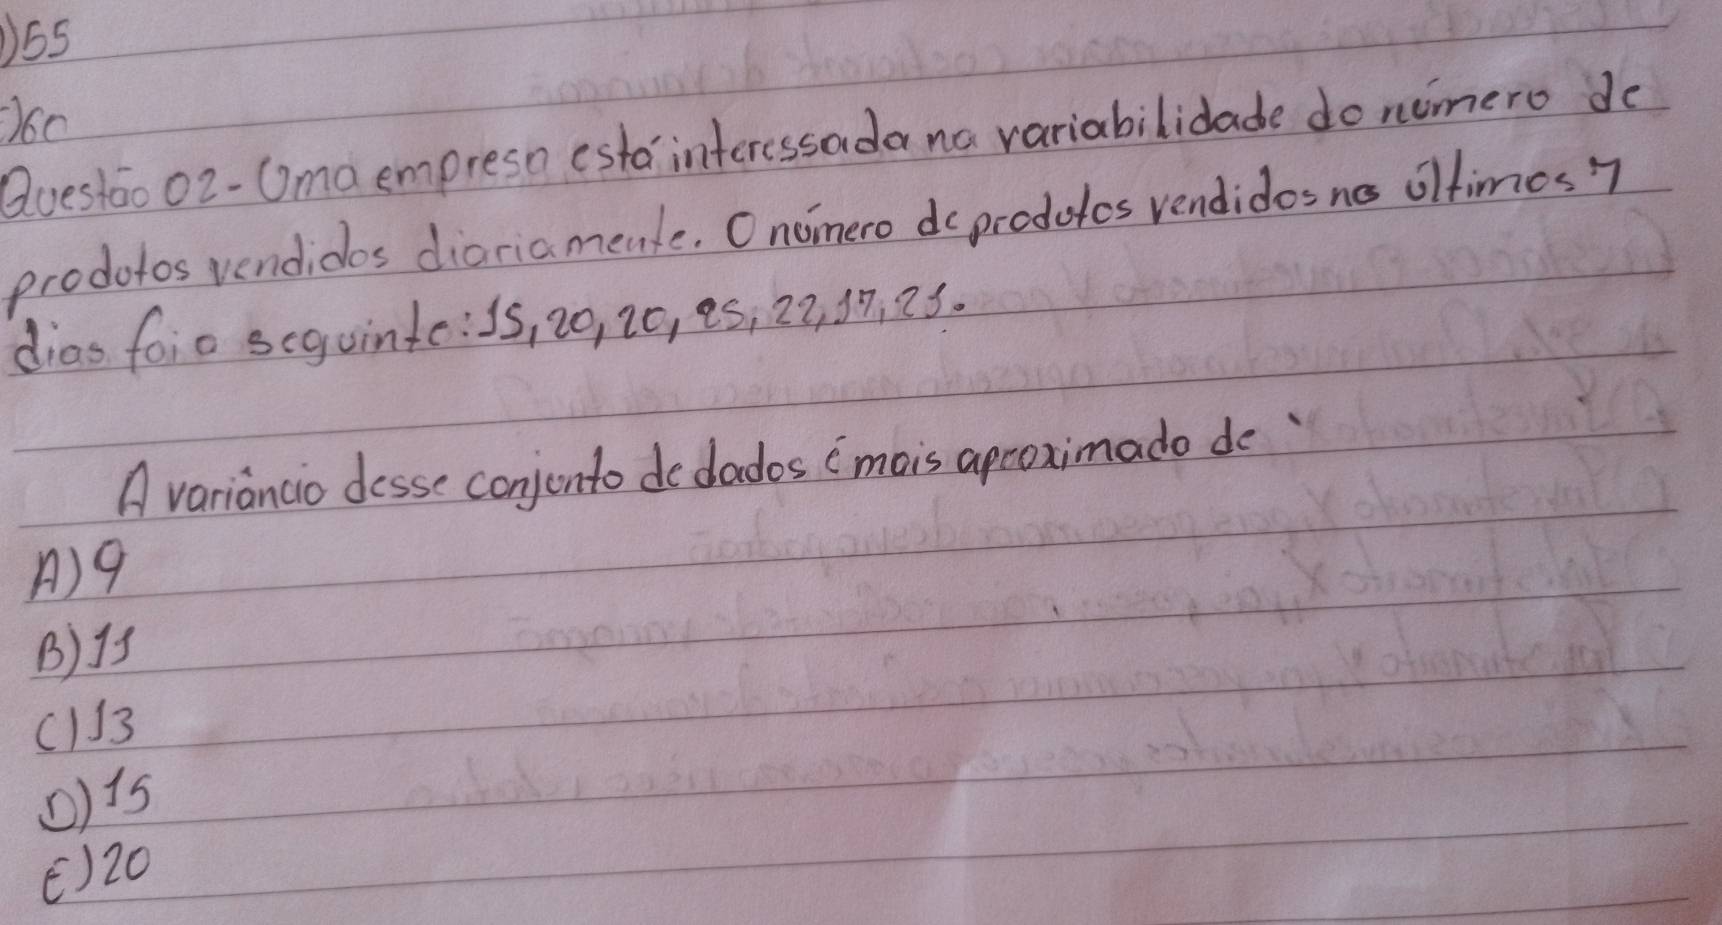 D) 55
E) 60
Questão 02 - Uma empresa está interessada na variabilidade do número de
produtos vendidos diariamente. O número de produtos vendidos nos últimos 7
dias foi o seguinte: 15, 20, 20, 25, 22, 17, 21.
A variância desse conjunto de dados é mais aproximado de
A) 9
B) 11
C) 13
D) 15
E) 20